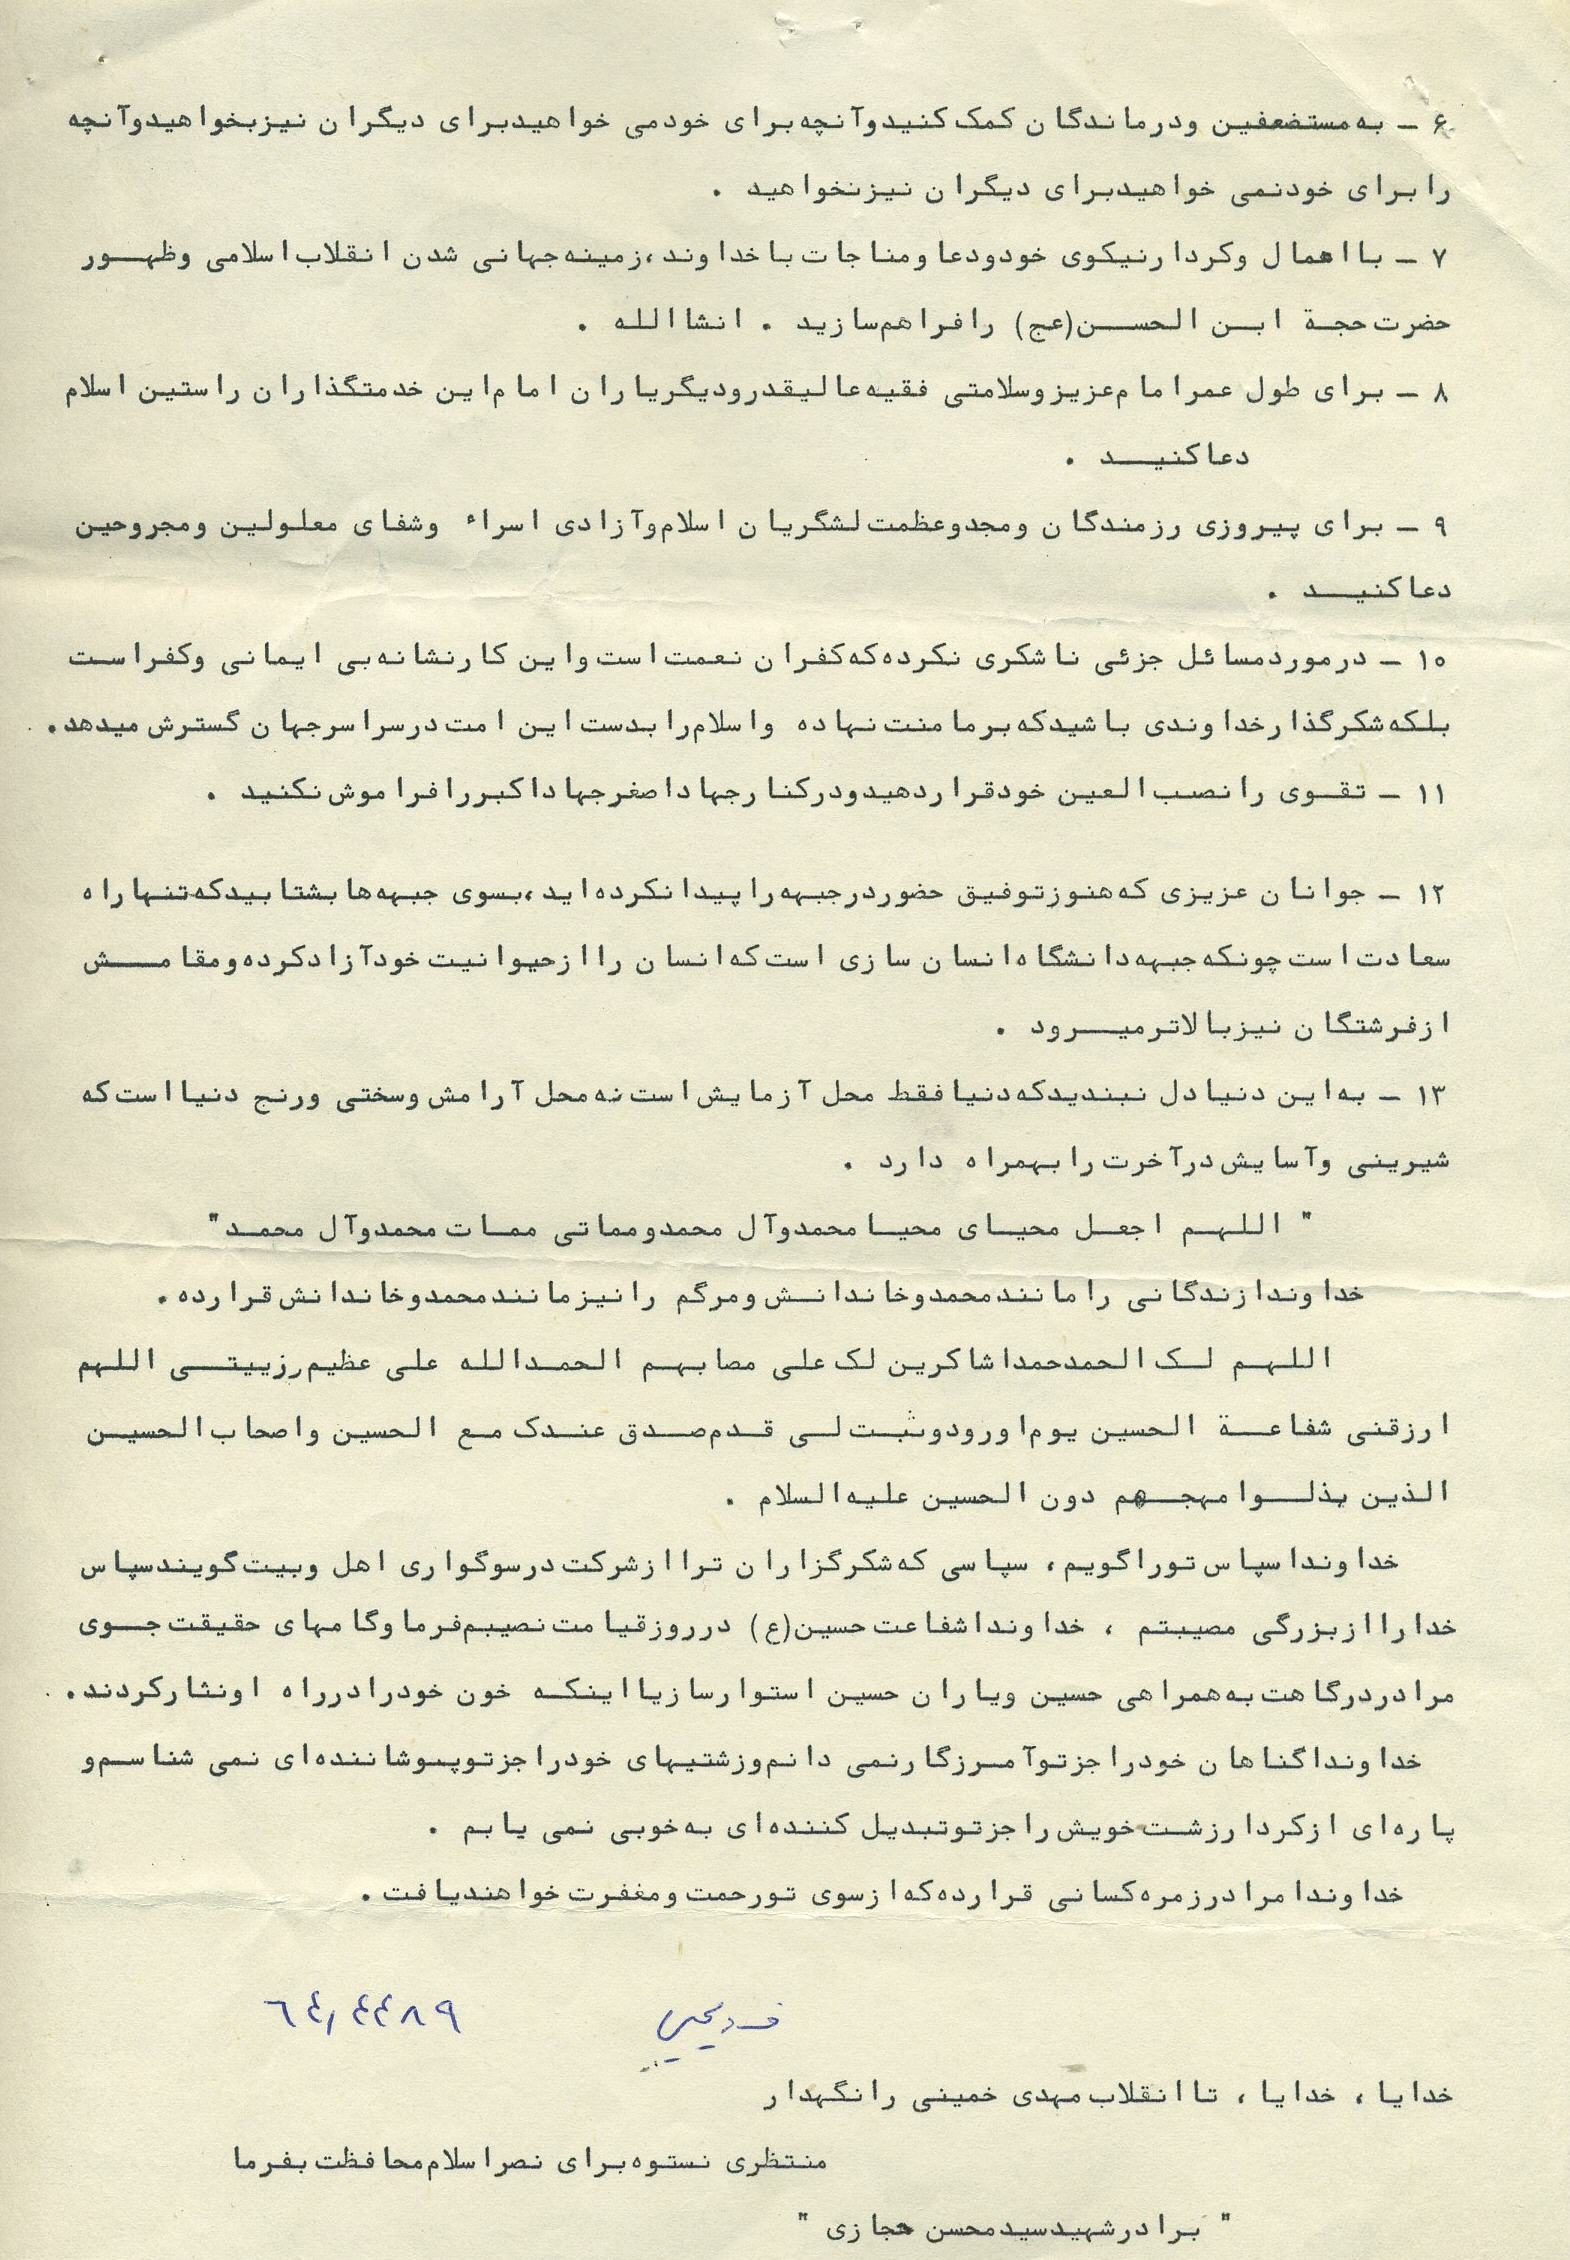 ۶ - به مستضعفین و درماندگان کمک کنید و آنچه برای خود می خواهید برای دیگران نیز بخواهید و آنچه
را برای خود نمی خواهید برای دیگران نیز نخواهید .
۷ - با اهمال و کردار نیکوی خود و دعا و مناجات با خداوند ، زمینه جهانی شدن انقلاب اسلامی و ظهور
حضرت حجة ابن الحسن (عج) را فراهم سازید . انشاالله .
۸ - برای طول عمر امام عزیز و سلامتی فقیه عالیقدر و دیگر یاران امام این خدمتگذاران راستین اسلام
دعا کنید .
۹ - برای پیروزی رزمندگان و مجد و عظمت لشگریان اسلام و آزادی اسراء و شفای معلولین و مجروحین
دعا کنید .
۱۰ - در مورد مسائل جزئی ناشکری نکرده که کفران نعمت است و این کار نشانه بی ایمانی و کفر است
بلکه شکرگذار خداوندی باشید که بر ما منت نهاده و اسلام را بدست این امت در سراسر جهان گسترش میدهد .
۱۱ - تقوی را نصب العین خود قرار دهید و در کنار جهاد اصغر جهاد اکبر را فراموش نکنید .
۱۲ - جوانان عزیزی که هنوز توفیق حضور در جبهه را پیدا نکرده اید ، بسوی جبهه ها بشتابید که تنها راه
سعادت است چونکه جبهه دانشگاه انسان سازی است که انسان را از حیوانیت خود آزاد کرده و مقامش
از فرشتگان نیز بالاتر میرود .
۱۳ - به این دنیا دل نبندید که دنیا فقط محل آزمایش است نه محل آرامش و سختی و رنج دنیا است که
شیرینی و آسایش در آخرت را بهمراه دارد .
" اللهم اجعل محیای محیا محمد و آل محمد و مماتی ممات محمد و آل محمد "
خداوندا زندگانی را مانند محمد و خاندانش و مرگم را نیز مانند محمد و خاندانش قرار ده .
اللهم لک الحمد حمدا شاکرین لک علی مصابهم الحمدالله علی عظیم رزییتی اللهم
ارزقنی شفاعة الحسین یوم اورود و ثبت لی قدم صدق عندک مع الحسین و اصحاب الحسین
الذین بذلوا مهجهم دون الحسین علیه السلام .
خداوندا سپاس تو را گویم ، سپاسی که شکرگزاران ترا از شرکت در سوگواری اهل وبیت گویند سپاس
خدا را از بزرگی مصیبتم ، خداوندا شفاعت حسین (ع) در روز قیامت نصیبم فرما و گامهای حقیقت جوی
مرا در درگاهت به همراهی حسین و یاران حسین استوار ساز یا اینکه خون خود را در راه او نثار کردند .
خداوندا گناهان خود را جز تو آمرزگار نمی دانم و زشتیهای خود را جز تو پوشاننده ای نمی شناسم و
پاره ای از کردار زشت خویش را جز تو تبدیل کننده ای به خوبی نمی یابم .
خداوندا مرا در زمره کسانی قرار ده که از سوی تو رحمت و مغفرت خواهند یافت .
خدایا ، خدایا ، تا انقلاب مهدی خمینی را نگهدار
منتظری نستوه برای نصر اسلام محافظت بفرما
" برادر شهید سید محسن حجازی "